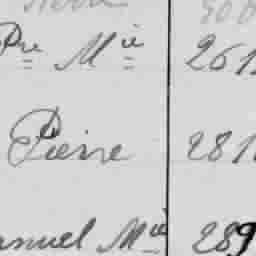 Pre Mie 261
Pierre 281
anuel Mie 289